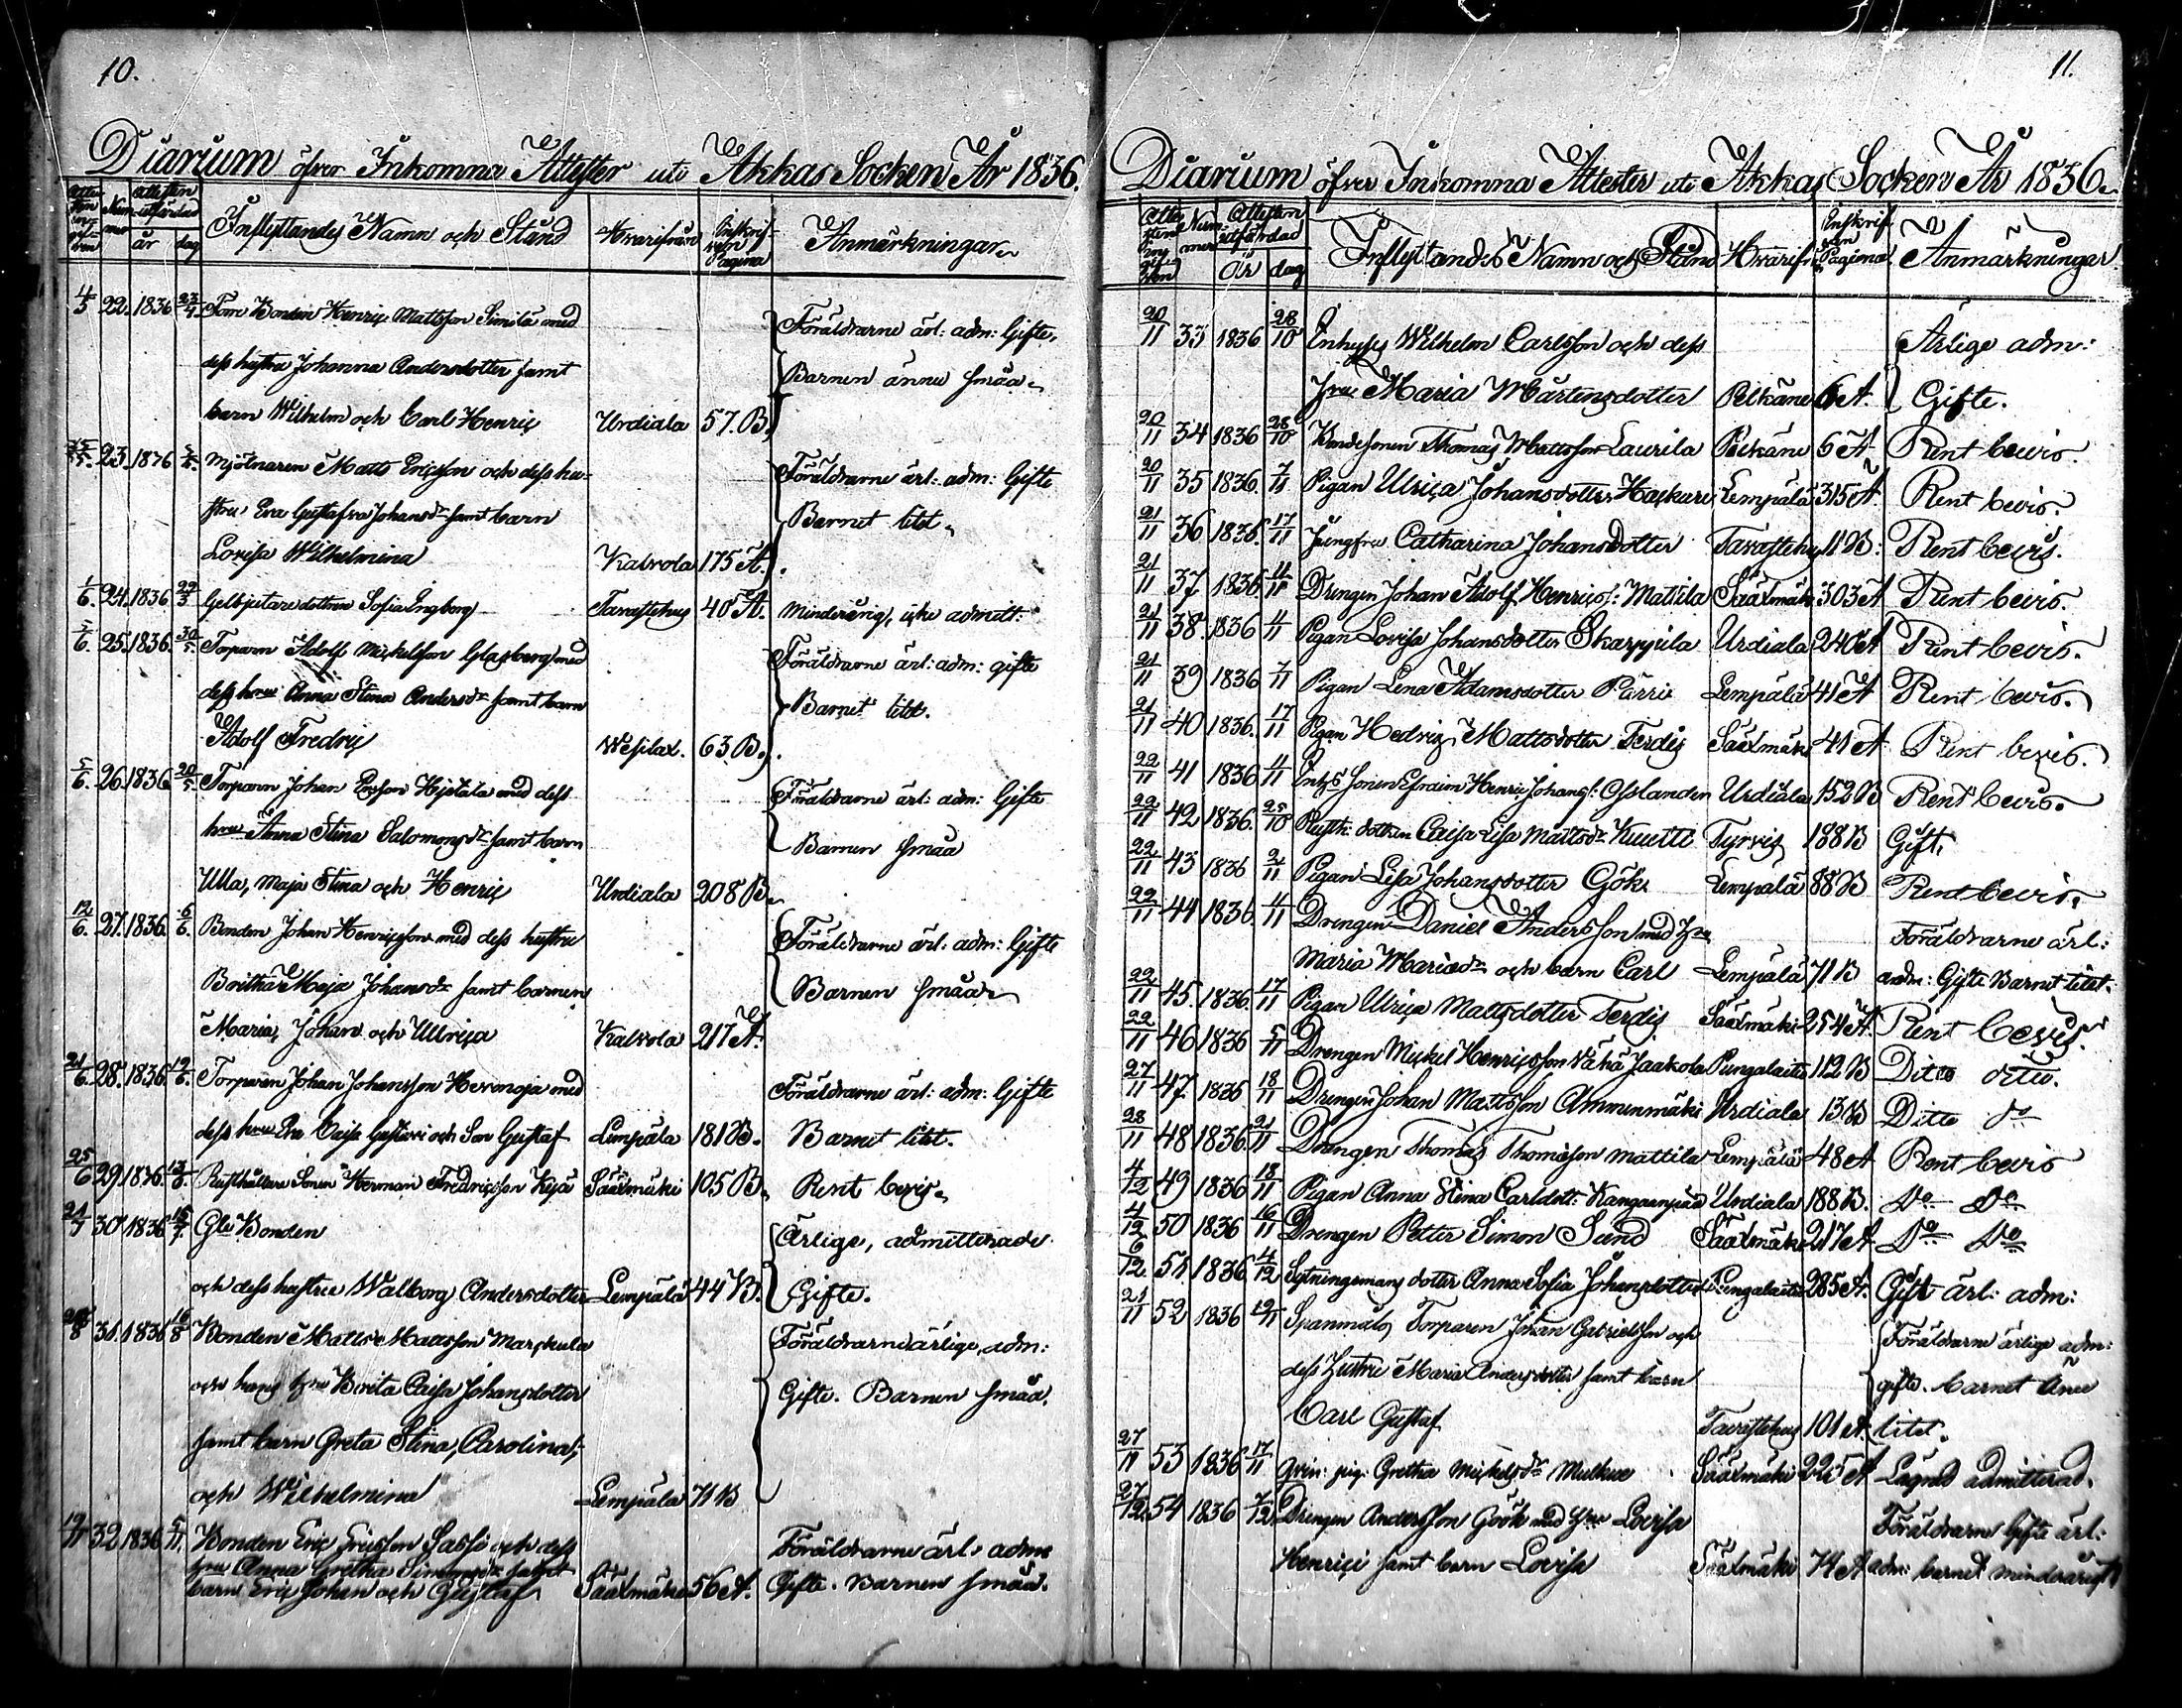 10.
Diarium öfver Inkomna Attester uti Akkas Socken År 1836.
Attesten ingifven Nummer Attesten utfärdad år dag Inflyttandes Namn och Stånd Hvarifrån Inskrifven Pagina Anmärkningar
4/5 22. 1836 23/4 Torp Bonden Henric Mattsson Simila med Föräldrarne ärl: adm: Gifte,
dess hustru Johanna Andersdotter samt Barnen ännu små
barn Wilhelm och Carl Henric Urdiala 57. B.
23. 1836 Mjölnaren Matts Ericsson och dess hu- Föräldrarne ärl: adm: Gifte
stru Eva Gustafva Johansdr samt barn Barnet litet
Lovisa Wilhelmina Kalvola 175 A.
1/6. 24. 1836 29/3 Gelbjutaredottren Sofia Engberg Tavastehus 40 A. Minderårig, icke admitt:
5/6. 25. 1836. 30/5. Torparn Adolf Mickelsson Glasberg med Föräldrarne ärl: adm: gifte
dess hru Anna Stina Andersdr samt barn Barnet litet.
Adolf Fredric Wesilax. 63 B.
5/6. 26. 1836 20/5. Torparn Johan Ersson Hijetala med dess Föräldrarne ärl: adm: Gifte
hru Anna Stina Salomonsdr samt barn Barnen små
Ulla, Maja Stina och Henric Urdiala 208 B.
12/6. 27. 1836. 6/6. Bonden Johan Henricsson med dess hustru Föräldrarne ärl: adm: Gifte
Britha Maja Johansdr samt barnen Barnen små
Maria, Johan och Ullrica Kalvola 217 A.
21/6. 28. 1836. 12/6. Torparen Johan Johansson Hermoja med Föräldrarne ärl: adm: Gifte
dess hru Eva Caisa Gustavi och Son Gustaf Lempäla 181 B. Barnet litet.
25/6 29. 1836. 13/6. Rusthållare Sonen Herman Fredricsson Keja Sääxmäki 105 B. Rent bevis
21/7 30 1836 15/7. Gle Bonden Ärlige, admitterade
och dess hustru Walborg Andersdotter Lempäla 44 B. Gifte.
28/8 31. 1836 16/8 Bonden Matts Mattsson Marckula Föräldrarne ärlige, adm:
och hans hru Brita Caisa Johansdotter Gifte. Barnen små.
samt barn Greta Stina, Carolina,
och Wilhelmina Lempäla 71 B
19/11 32 1836 5/11. Bonden Eric Ericsson Sassi och dess Föräldrarne ärl: adm:
hru Anna Gretha Simonsdr samt
barn Eric Johan och Gustaf Sääxmäki 56 A. Gifte. Barnen små.
11.
Diarium öfver Inkomna Attester uti Akkas Socken År 1836.
Attesten Ingifven Nummer Attesten utfärdad år dag Inflyttandes Namn och Stånd Hvarifrån Inskrifven Pagina Anmärkningar
20/11 33 1836 28/10 Inhyses Wilhelm Carlsson och dess Ärlige adm:
hru Maria Mårtensdotter Pelkäne 6 A. Gifte.
20/11 34 1836 28/10 Bondesonen Thomas Mattsson Laurila Pelkäne 6 A Rent bevis.
20/11 35 1836. 7/11 Pigan Ulrica Johansdotter Hackare Lempälä 315 A Rent bevis.
21/11 36 1836. 17/11 Jungfru Catharina Johansdotter Tavastehus 11 B: Rent bevis.
21/11 37 1836 Drengen Johan Adolf Henrics: Mattila Sääxmäki 303 A Rent bevis.
21/11 38. 1836 4/11 Pigan Lovisa Johansdotter Skarpila Urdiala 240 A Rent bevis.
21/11 39 1836 7/11 Pigan Lena Adamsdotter Pärri Lempälä 41 A Rent bevis.
21/11 40 1836. 17/11 Pigan Hedvig Mattsdotter Ferdig Sääxmäki 41 A Rent bevis.
22/11 41 1836 4/11 Sonen Efraim Henric Johans: Osslanden Urdiala 152 B Rent bevis.
22/11 42 1836. 25/10 Rusth: dottren Caisa Lisa Mattsdr Kuutti Tyrvis 188 B Gift,
22/11 43 1836 2/11 Pigan Lisa Johansdotter Gök Lempälä 88 B Rent bevis,
22/11 44 1836. 4/11 Drengen Daniel Andersson med Hru Föräldrarne ärl:
Maria Mariædr och barn Carl Lempälä 71 B adm: Gifte Barnet litet.
22/11 45. 1836. 17/11 Pigan Ulrica Mattsdotter Ferdig Sääxmäki 254 A. Rent bevis.
22/11 46 1836 5/11 Drengen Mickel Henricsson Vähä Jaakola Pungalaitio 112 B Ditto ditto.
27/11 47. 1836 18/11 Drengen Johan Mattsson Ammenmäki Urdiala 13 B Ditto Do
28/11 48 1836 21/11 Drengen Thomas Thomasson Mattila Lempälä 48 A Rent bevis
4/12 49 1836 18/11 Pigan Anna Stina Carlsdott: Kangaanpää Urdiala 188 B. Do Do
4/12 50 1836 16/11 Drengen Petter Simon Sund Sääxmäki 217 A Do Do
6/12. 51 1836 4/12 Sytningsmans dotter Anna Sofia Johansdotter Pungalaitio 285 A. Gift ärl: adm:
21/11 52 1836 19/11 Spanmåls Torparen Johan Gabrielsson och Föräldrarne ärlige adm:
dess hustru Maria Andersdotter samt barn gifte. barnet ännu
Carl Gustaf Tavastehus 101 A. litet.
27/11 53 1836 17/11 pig. Gretha Mickelsdr Mulkue Sääxmäki 225 A Lagvad admitterad.
27/12. 54 1836 7/12. Drengen Andersson Göök med Hru Lovisa Föräldrarne Gifte ärl:
Henrici samt barn Lovisa Sääxmäki 74 A adm: barnet minderårigt